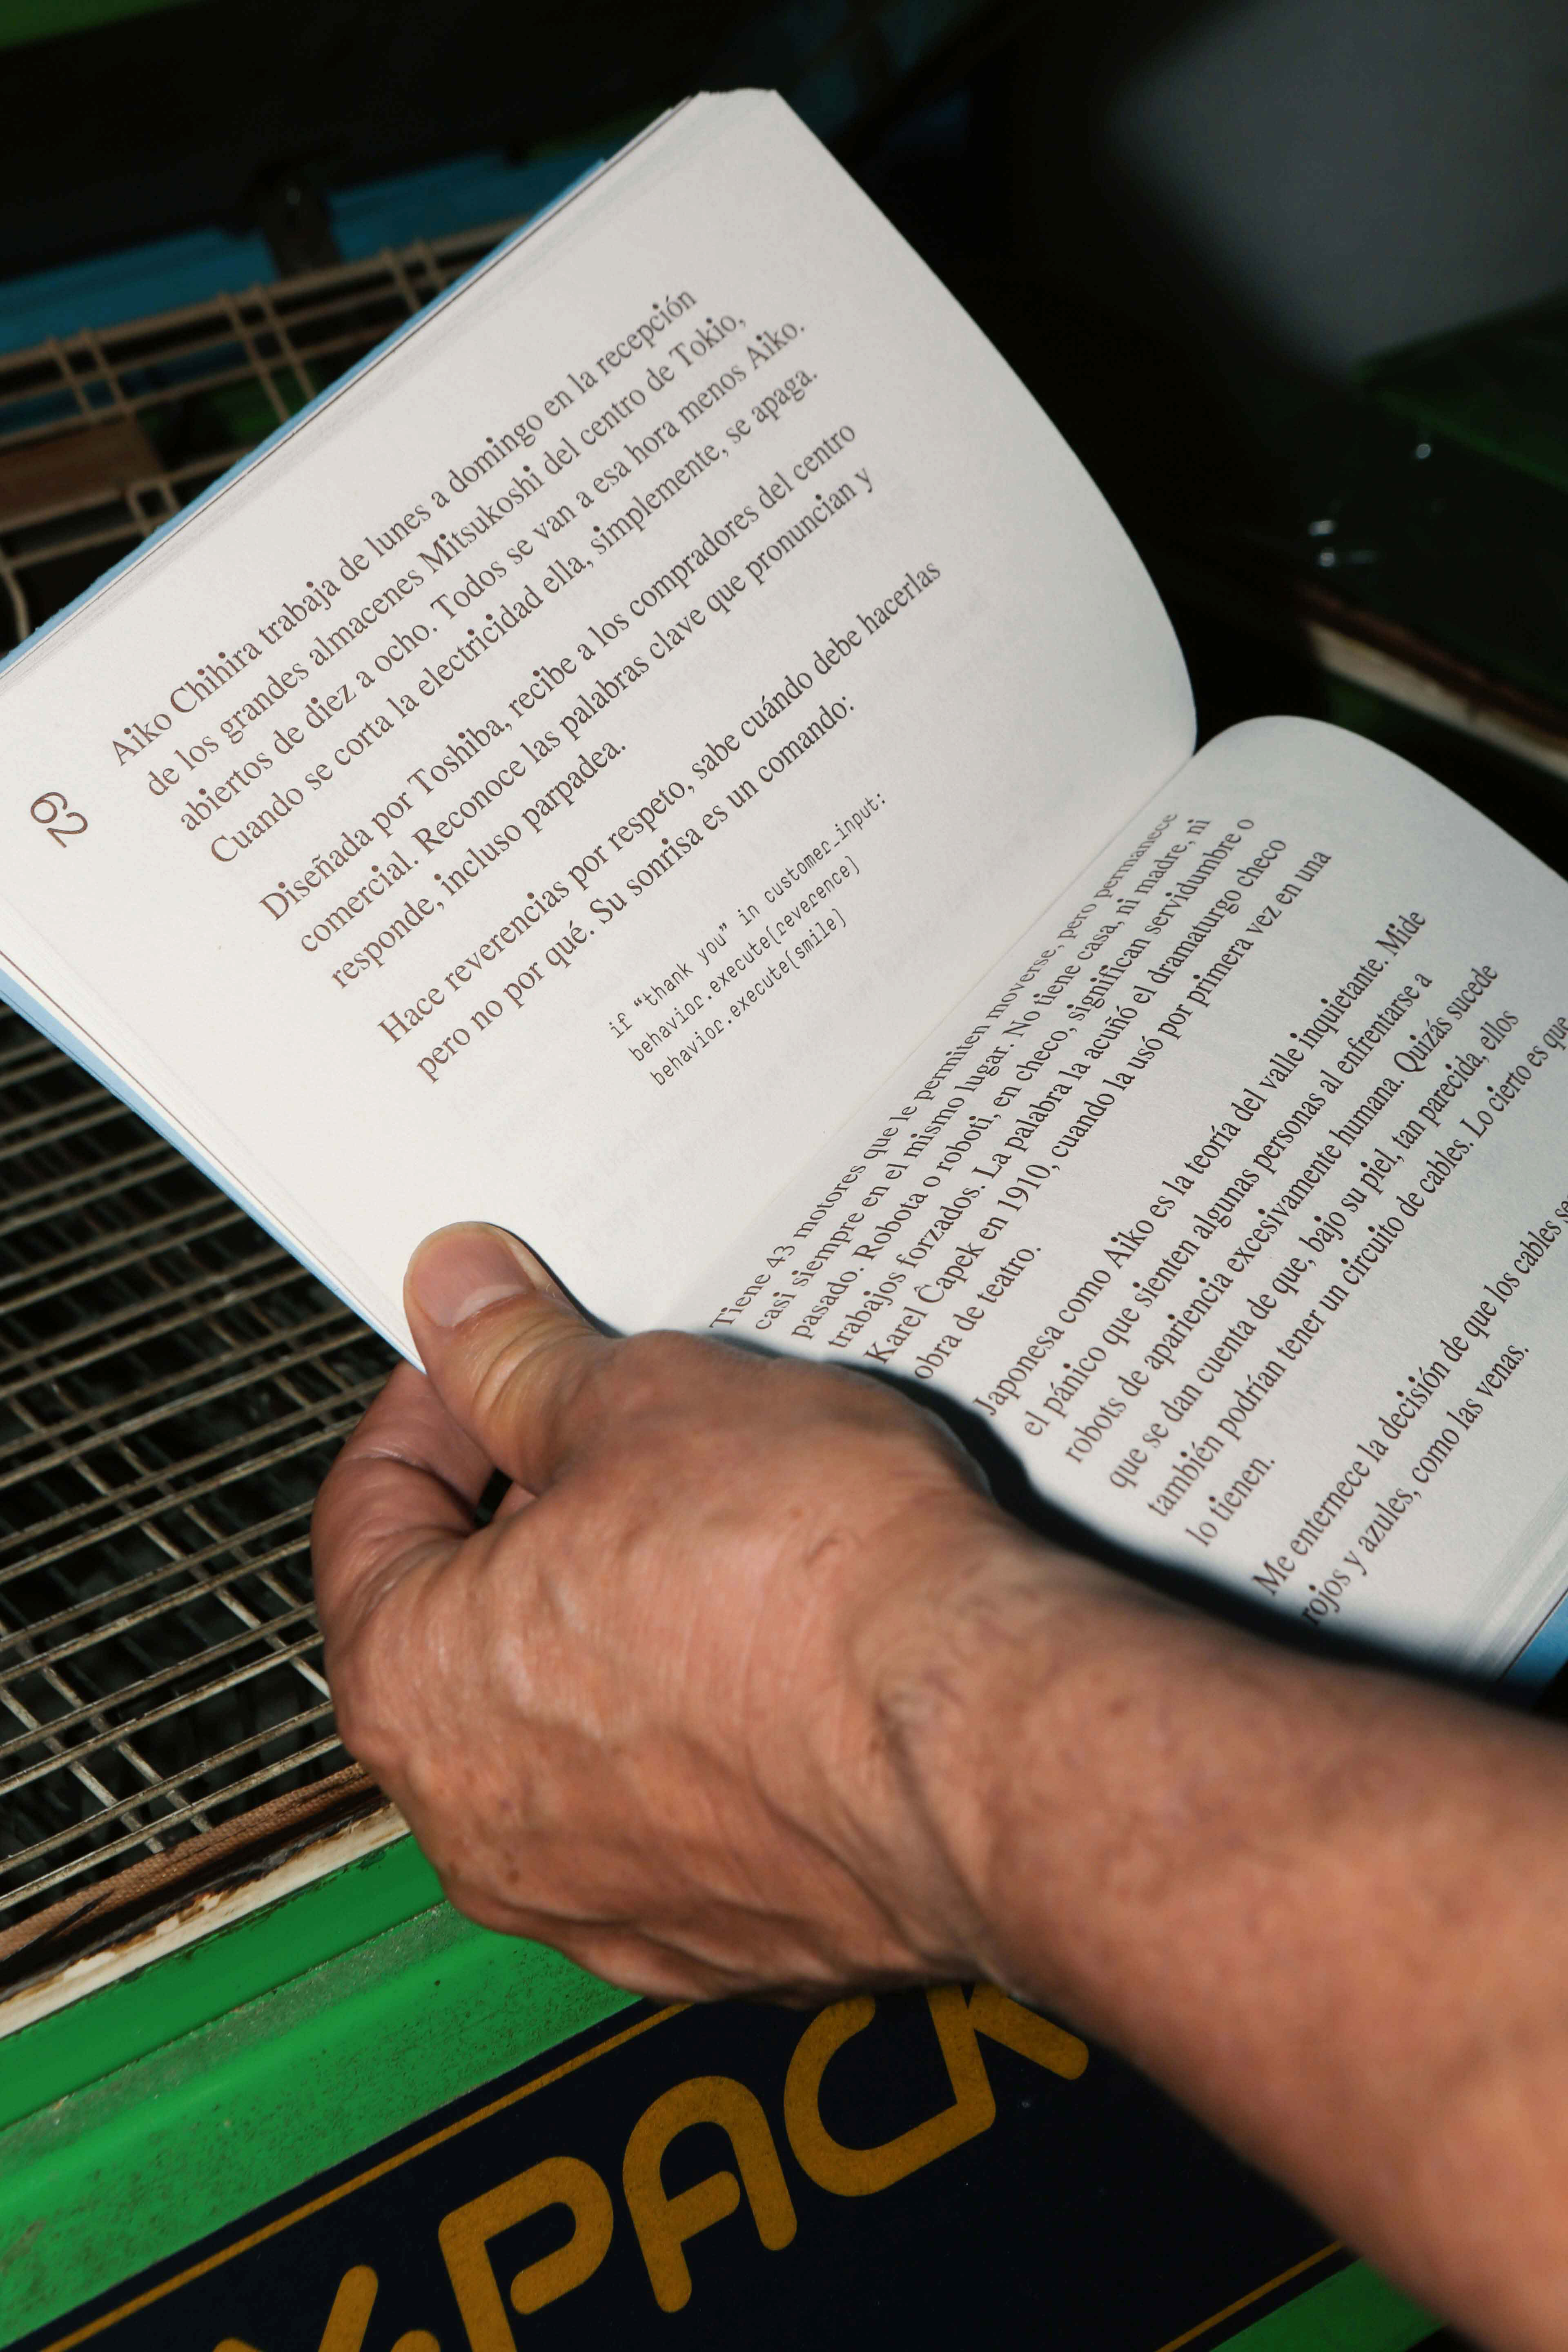 62
Aiko Chihira trabaja de lunes a domingo en la recepción
de los grandes almacenes Mitsukoshi del centro de Tokio,
abiertos de diez a ocho. Todos se van a esa hora menos Aiko.
Cuando se corta la electricidad ella, simplemente, se apaga.
Diseñada por Toshiba, recibe a los compradores del centro
comercial. Reconoce las palabras clave que pronuncian y
responde, incluso parpadea.
Hace reverencias por respeto, sabe cuándo debe hacerlas
pero no por qué. Su sonrisa es un comando:
if “thank you” in customer_input:
behavior.execute[reverence]
behavior.execute[smile]
Tiene 43 motores que le permiten moverse, pero permanece
casi siempre en el mismo lugar. No tiene casa, ni madre, ni
pasado. Robota o roboti, en checo, significan servidumbre o
trabajos forzados. La palabra la acuñó el dramaturgo checo
Karel Ĉapek en 1910, cuando la usó por primera vez en una
obra de teatro.
Japonesa como Aiko es la teoría del valle inquietante. Mide
el pánico que sienten algunas personas al enfrentarse a
robots de apariencia excesivamente humana. Quizás sucede
que se dan cuenta de que, bajo su piel, tan parecida, ellos
también podrían tener un circuito de cables. Lo cierto es que
lo tienen.
Me enternece la decisión de que los cables
rojos y azules, como las venas.
PACK